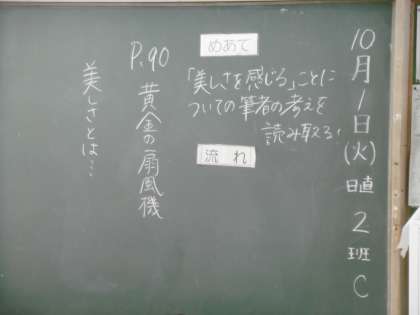 10月1日(火)日直 2班 C
めあて
「美しさを感じる」ことに
ついての筆者の考えを
読み取る。
流れ
P.90 黄金の扇風機
美しさとは…